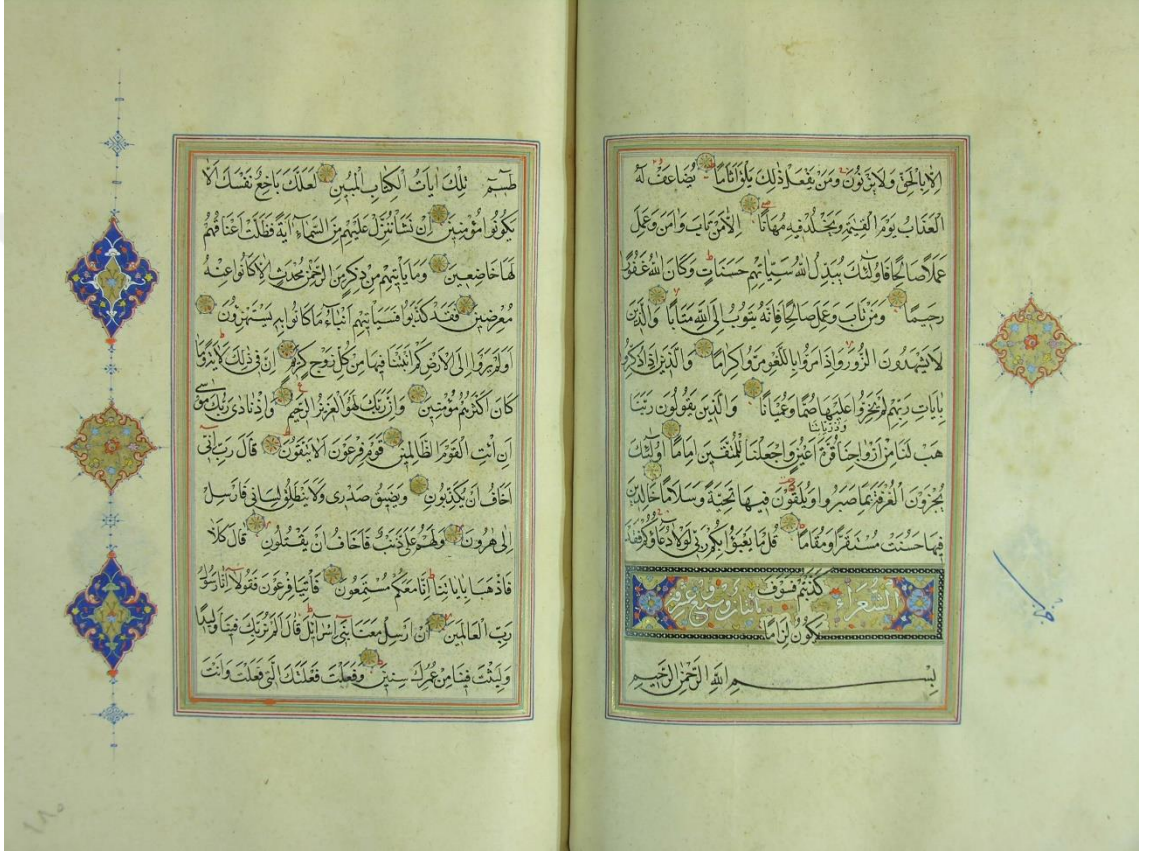 إِلَّا بِالْحَقِّ وَلَا يَزْنُونَ وَمَنْ يَفْعَلْ ذٰلِكَ يَلْقَ أَثَامًا يُضَاعَفْ لَهُ
الْعَذَابُ يَوْمَ الْقِيٰمَةِ وَيَخْلُدْ فِيهِ مُهَانًا إِلَّا مَنْ تَابَ وَاٰمَنَ وَعَمِلَ
عَمَلًا صَالِحًا فَأُولٰئِكَ يُبَدِّلُ اللهُ سَيِّئَاتِهِمْ حَسَنَاتٍ وَكَانَ اللهُ غَفُورًا
رَحِيمًا وَمَنْ تَابَ وَعَمِلَ صَالِحًا فَإِنَّهُ يَتُوبُ إِلَى اللهِ مَتَابًا وَالَّذِينَ
لَا يَشْهَدُونَ الزُّورَ وَإِذَا مَرُّوا بِاللَّغْوِ مَرُّوا كِرَامًا وَالَّذِينَ إِذَا ذُكِّرُوا
بِاٰيَاتِ رَبِّهِمْ لَمْ يَخِرُّوا عَلَيْهَا صُمًّا وَعُمْيَانًا وَالَّذِينَ يَقُولُونَ رَبَّنَا
وَذُرِّيَّاتِنَا
هَبْ لَنَا مِنْ أَزْوَاجِنَا قُرَّةَ أَعْيُنٍ وَاجْعَلْنَا لِلْمُتَّقِينَ إِمَامًا أُولٰئِكَ
يُجْزَوْنَ الْغُرْفَةَ بِمَا صَبَرُوا وَيُلَقَّوْنَ فِيهَا تَحِيَّةً وَسَلَامًا خَالِدِينَ
فِيهَا حَسُنَتْ مُسْتَقَرًّا وَمُقَامًا قُلْ مَا يَعْبَؤُا بِكُمْ رَبِّي لَوْلَا دُعَاؤُكُمْ فَقَدْ
كَذَّبْتُمْ فَسَوْفَ
الشُّعَرَاءِ
يَكُونُ لِزَامًا
بِسْمِ اللهِ الرَّحْمٰنِ الرَّحِيمِ
طسٓمٓ تِلْكَ اٰيَاتُ الْكِتَابِ الْمُبِينِ لَعَلَّكَ بَاخِعٌ نَفْسَكَ أَلَّا
يَكُونُوا مُؤْمِنِينَ إِنْ نَشَأْ نُنَزِّلْ عَلَيْهِمْ مِنَ السَّمَاءِ اٰيَةً فَظَلَّتْ أَعْنَاقُهُمْ
لَهَا خَاضِعِينَ وَمَا يَأْتِيهِمْ مِنْ ذِكْرٍ مِنَ الرَّحْمٰنِ مُحْدَثٍ إِلَّا كَانُوا عَنْهُ
مُعْرِضِينَ فَقَدْ كَذَّبُوا فَسَيَأْتِيهِمْ أَنْبَاءُ مَا كَانُوا بِهِ يَسْتَهْزِؤُنَ
أَوَلَمْ يَرَوْا إِلَى الْأَرْضِ كَمْ أَنْبَتْنَا فِيهَا مِنْ كُلِّ زَوْجٍ كَرِيمٍ إِنَّ فِي ذٰلِكَ لَاٰيَةً وَمَا
كَانَ أَكْثَرُهُمْ مُؤْمِنِينَ وَإِنَّ رَبَّكَ لَهُوَ الْعَزِيزُ الرَّحِيمُ وَإِذْ نَادٰى رَبُّكَ مُوسٰى
أَنِ ائْتِ الْقَوْمَ الظَّالِمِينَ قَوْمَ فِرْعَوْنَ أَلَا يَتَّقُونَ قَالَ رَبِّ إِنِّي
أَخَافُ أَنْ يُكَذِّبُونِ وَيَضِيقُ صَدْرِي وَلَا يَنْطَلِقُ لِسَانِي فَأَرْسِلْ
إِلٰى هٰرُونَ وَلَهُمْ عَلَيَّ ذَنْبٌ فَأَخَافُ أَنْ يَقْتُلُونِ قَالَ كَلَّا
فَاذْهَبَا بِاٰيَاتِنَا إِنَّا مَعَكُمْ مُسْتَمِعُونَ فَأْتِيَا فِرْعَوْنَ فَقُولَا إِنَّا رَسُولُ
رَبِّ الْعَالَمِينَ أَنْ أَرْسِلْ مَعَنَا بَنِي إِسْرَائِيلَ قَالَ أَلَمْ نُرَبِّكَ فِينَا وَلِيدًا
وَلَبِثْتَ فِينَا مِنْ عُمُرِكَ سِنِينَ وَفَعَلْتَ فَعْلَتَكَ الَّتِي فَعَلْتَ وَأَنْتَ